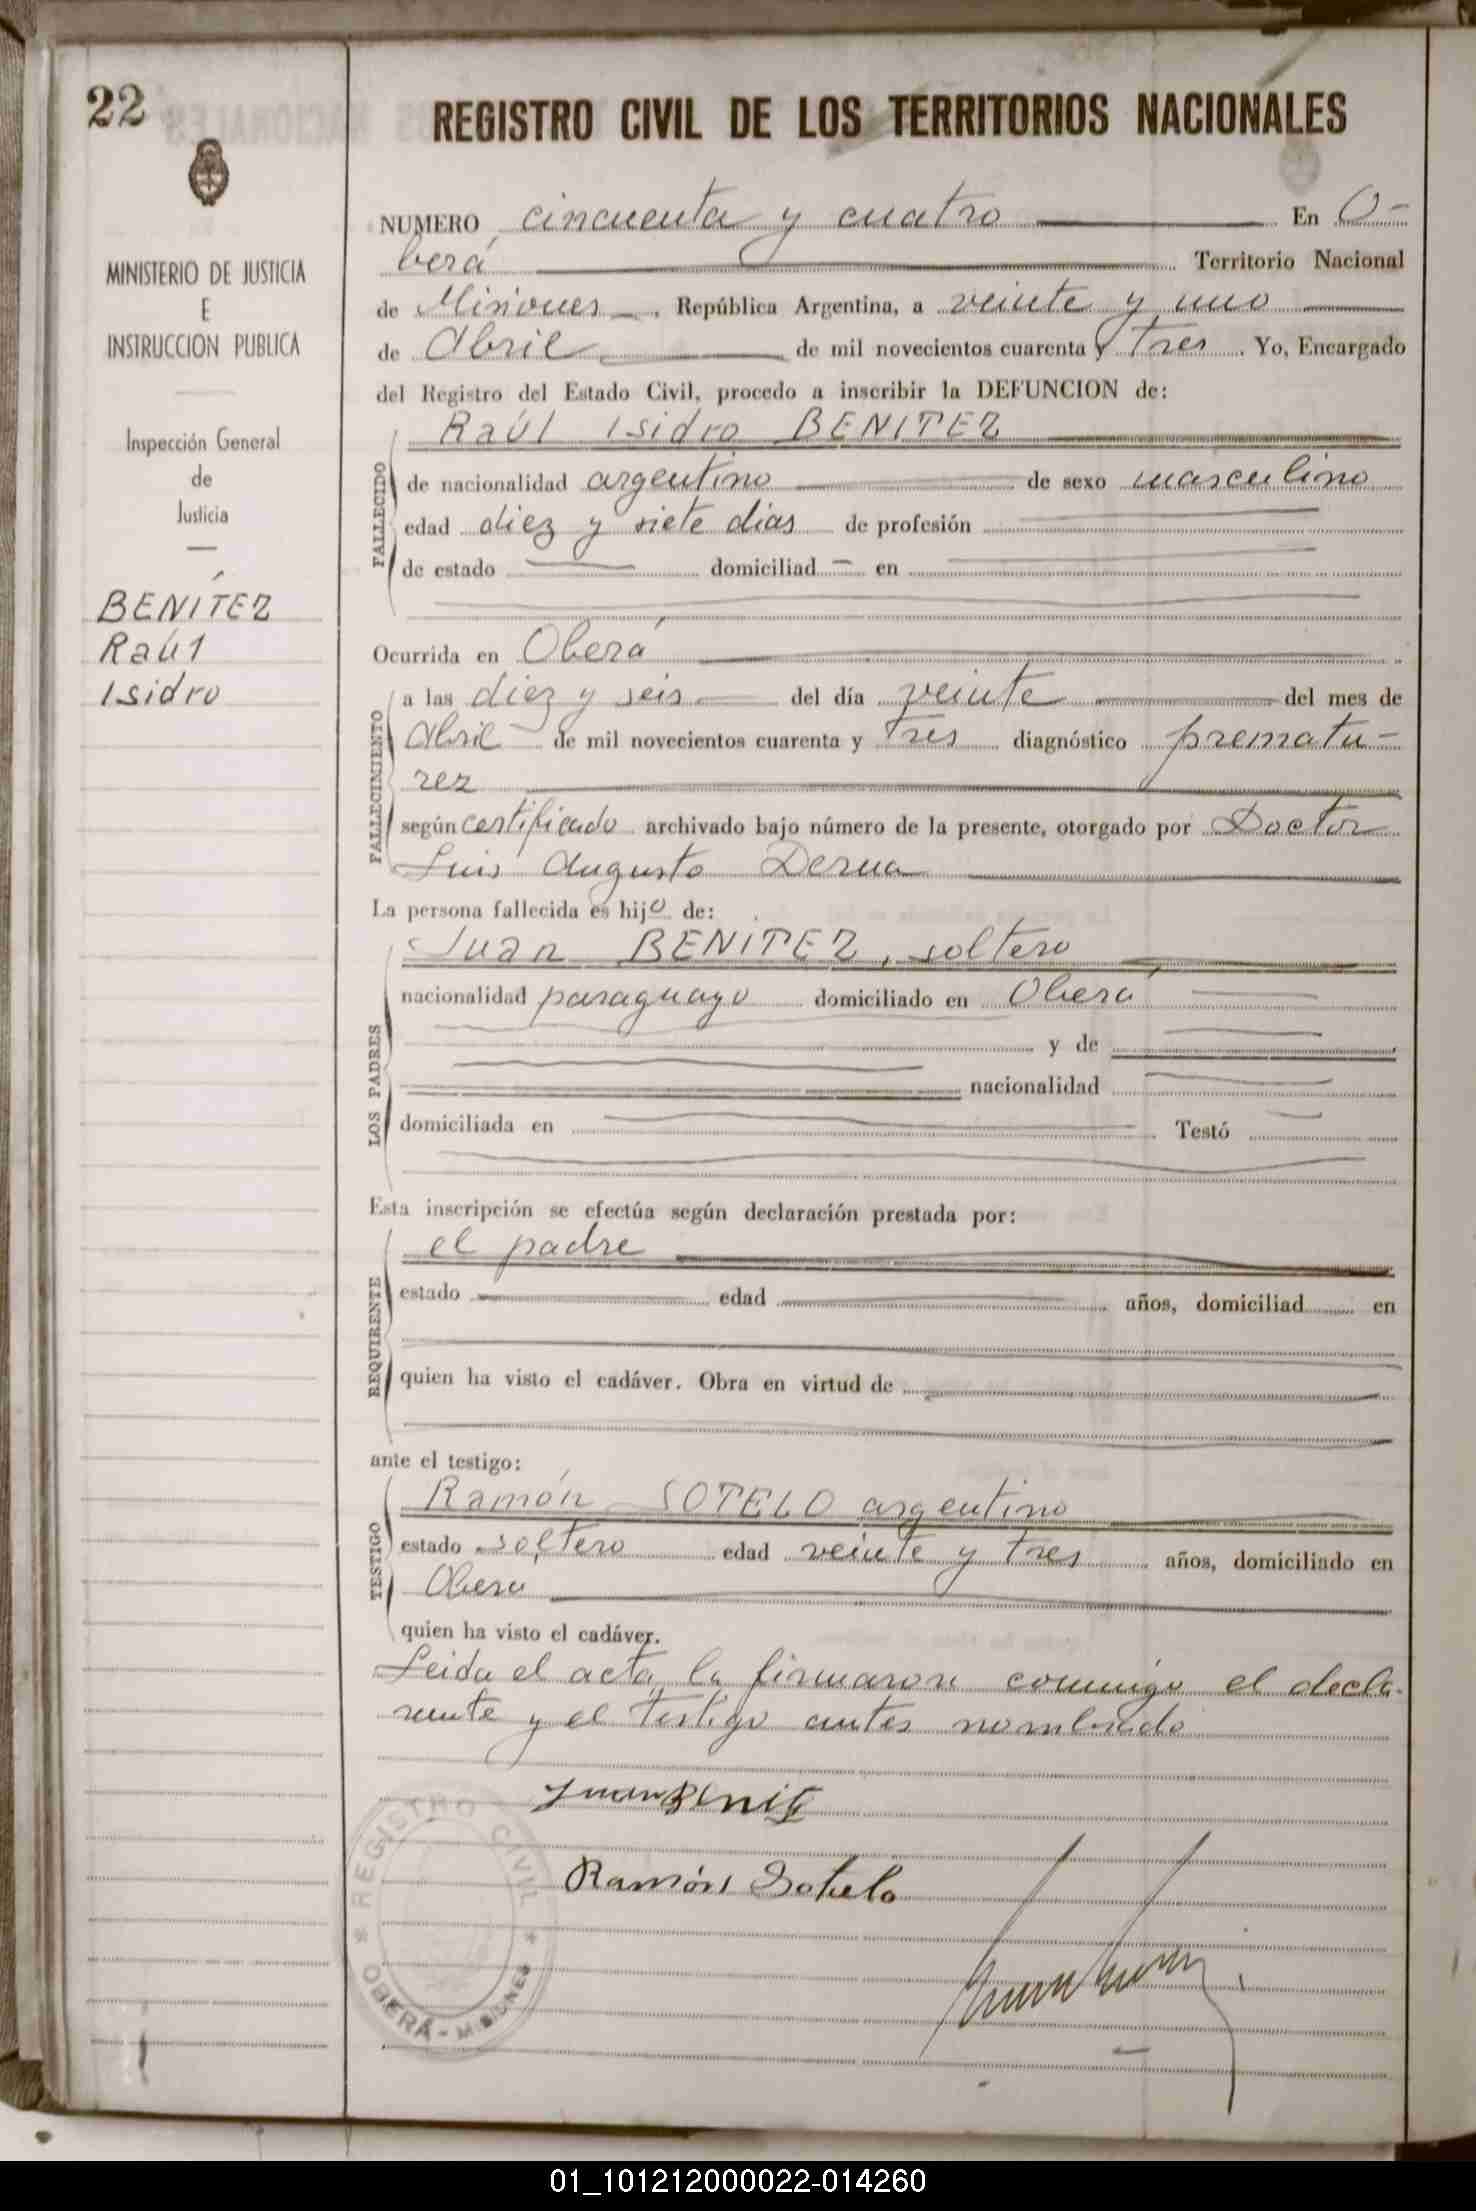 22
REGISTRO CIVIL DE LOS TERRITORIOS NACIONALES
MINISTERIO DE JUSTICIA
E
INSTRUCCION PUBLICA
Inspección General
de
Justicia
BENÍTEZ
Raúl
Isidro
NUMERO cincuenta y cuatro En O-
berá Territorio Nacional
de Misiones, República Argentina, a veinte y uno
de Abril de mil novecientos cuarenta y tres. Yo, Encargado
del Registro del Estado Civil, procedo a inscribir la DEFUNCION de:
Raúl Isidro BENITEZ
FALLECIDO
de nacionalidad argentino de sexo masculino
edad diez y siete dias de profesión
de estado domiciliad en
Ocurrida en Oberá
FALLECIMIENTO
a las diez y seis del día veinte del mes de
Abril de mil novecientos cuarenta y tres diagnóstico prematu-
rez
según certificado archivado bajo número de la presente, otorgado por Doctor
Luis Augusto Derna
La persona fallecida es hijo de:
LOS PADRES
Juan BENITEZ, soltero
nacionalidad paraguayo domiciliado en Oberá
y de
nacionalidad
domiciliada en Testó
Esta inscripción se efectúa según declaración prestada por:
REQUIRENTE
el padre
estado edad años, domiciliad en
quien ha visto el cadáver. Obra en virtud de
ante el testigo:
TESTIGO
Ramón SOTELO argentino
estado soltero edad veinte y tres años, domiciliado en
Obera
quien ha visto el cadáver.
Leida el acta, la firmaron conmigo el decla-
rante y el testigo antes nombrado
Juan Benitz
Ramón Sotelo
REGISTRO CIVIL
OBERÁ - MISIONES
01_101212000022-014260